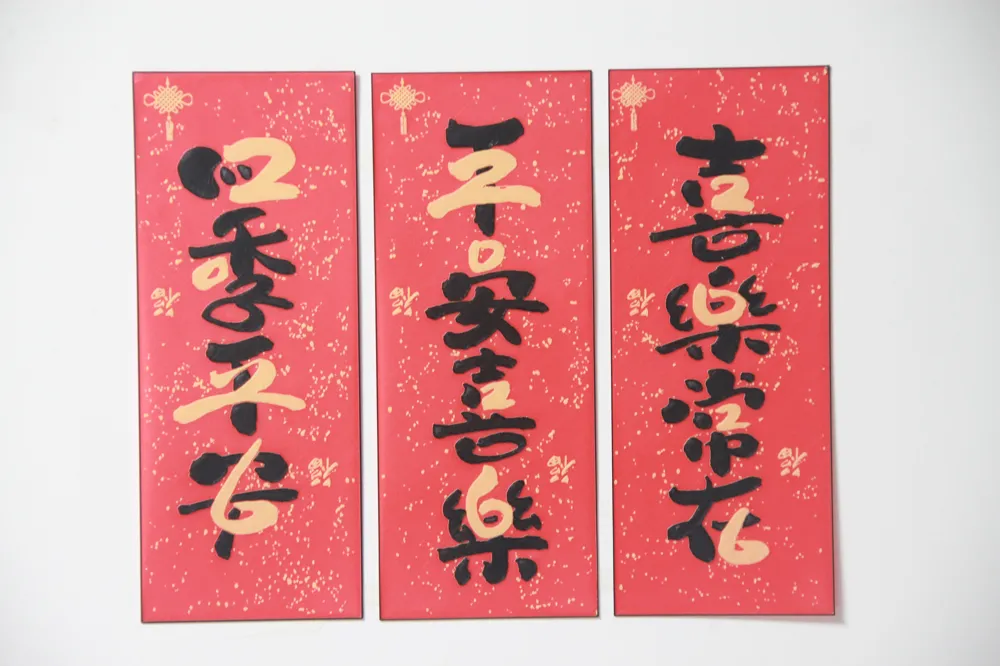 四季平安
平安喜樂
喜樂常在